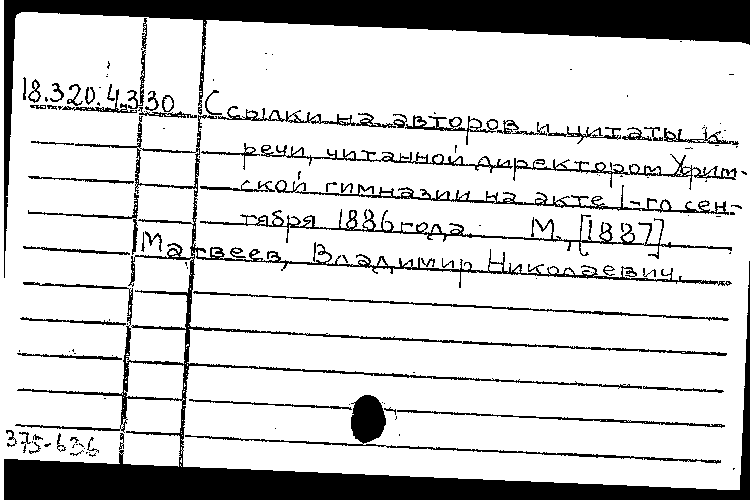 18.320.4.330. Ссылки на авторов и цитаты к
речи, читанной директором Хрим-
ской гимназии на акте 1-го сен-
тября 1886 года. М., [1887].
Матвеев, Владимир Николаевич.
375-636